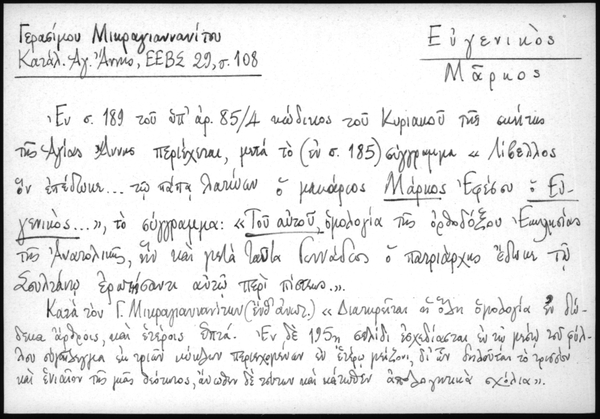 Γερασίμου Μικραγιαννανίτου
Κατάλ. Ἁγ. Ἄννης, ΕΕΒΣ 29, σ. 108
Εὐγενικὸς
Μᾶρκος
Ἐν σ. 189 τοῦ ὑπ' ἀρ. 85/4 κώδικος τοῦ Κυριακοῦ τῆς σκήτης
τῆς Ἁγίας Ἄννης περιέχεται, μετὰ τὸ (ἐν σ. 185) σύγγραμμα « Λίβελλος
ὃν ἐπέδωκε... τῷ πάπᾳ Λατίνων ὁ μακάριος Μάρκος Ἐφέσου ὁ Εὐ-
γενικὸς...», τὸ σύγγραμμα: «Τοῦ αὐτοῦ, ὁμολογία τῆς ὀρθοδόξου Ἐκκλησίας
τῆς Ἀνατολικῆς, ἣν καὶ μετὰ ταῦτα Γεννάδιος ὁ πατριάρχης ἔδωκε τῷ
Σουλτάνῳ ἐρωτήσαντι αὐτῷ περὶ πίστεως..».
Κατὰ τὸν Γ. Μικραγιαννανίτην (ἔνθ' ἀνωτ.) « Διαιρεῖται ἡ ὅλη ὁμολογία ἐν δώ-
δεκα ἄρθροις, καὶ ἑτέροις ἑπτά. Ἐν δὲ 195ῃ σελίδι ἐσχεδίασται ἐν τῷ μέσῳ τοῦ φύλ-
λου σύμπλεγμα ἐκ τριῶν κύκλων περιεχομένων ἐν ἑτέρῳ μείζονι, δι' ὧν δηλοῦται τὸ τρισσὸν
καὶ ἑνιαῖον τῆς μιᾶς θεότητος, ἄνωθεν δὲ τούτων καὶ κάτωθεν ἀπολογητικὰ σχόλια».